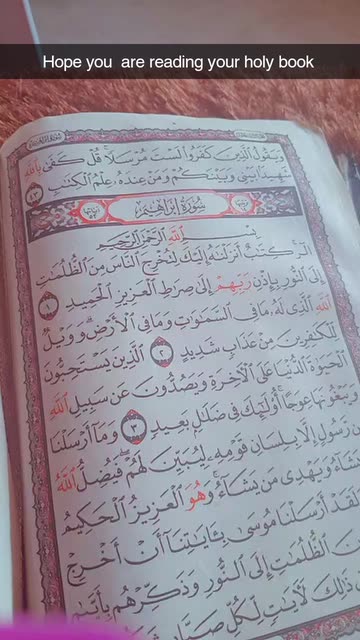 Hope you are reading your holy book
وَيَقُولُ ٱلَّذِينَ كَفَرُوا۟ لَسْتَ مُرْسَلًا ۚ قُلْ كَفَىٰ بِٱللَّهِ
شَهِيدًۢا بَيْنِى وَبَيْنَكُمْ وَمَنْ عِندَهُۥ عِلْمُ ٱلْكِتَٰبِ ٤٣
سُورَةُ إِبْرَاهِيمَ
بِسْمِ ٱللَّهِ ٱلرَّحْمَٰنِ ٱلرَّحِيمِ
الٓر ۚ كِتَٰبٌ أَنزَلْنَٰهُ إِلَيْكَ لِتُخْرِجَ ٱلنَّاسَ مِنَ ٱلظُّلُمَٰتِ
إِلَى ٱلنُّورِ بِإِذْنِ رَبِّهِمْ إِلَىٰ صِرَٰطِ ٱلْعَزِيزِ ٱلْحَمِيدِ ١
ٱللَّهِ ٱلَّذِى لَهُۥ مَا فِى ٱلسَّمَٰوَٰتِ وَمَا فِى ٱلْأَرْضِ ۗ وَوَيْلٌ
لِّلْكَٰفِرِينَ مِنْ عَذَابٍ شَدِيدٍ ٢ ٱلَّذِينَ يَسْتَحِبُّونَ
ٱلْحَيَوٰةَ ٱلدُّنْيَا عَلَى ٱلْءَاخِرَةِ وَيَصُدُّونَ عَن سَبِيلِ ٱللَّهِ
وَيَبْغُونَهَا عِوَجًا ۚ أُو۟لَٰٓئِكَ فِى ضَلَٰلٍۭ بَعِيدٍ ٣ وَمَآ أَرْسَلْنَا
مِن رَّسُولٍ إِلَّا بِلِسَانِ قَوْمِهِۦ لِيُبَيِّنَ لَهُمْ ۖ فَيُضِلُّ ٱللَّهُ
وَيَهْدِى مَن يَشَآءُ ۚ وَهُوَ ٱلْعَزِيزُ ٱلْحَكِيمُ
أَرْسَلْنَا مُوسَىٰ بِـَٔايَٰتِنَآ أَنْ أَخْرِجْ
ٱلظُّلُمَٰتِ إِلَى ٱلنُّورِ وَذَكِّرْهُم بِأَيَّىٰمِ
ذَٰلِكَ لَءَايَٰتٍ لِّكُلِّ صَبَّارٍ